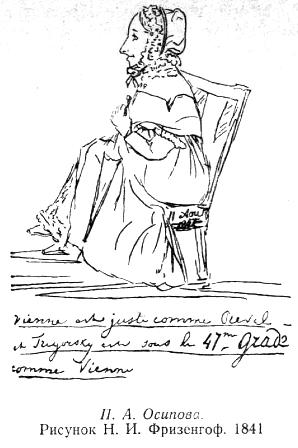 Vienne est juste comme
et Trigorsky est sous le 47me grade
comme Vienne
П. А. Осипова.
Рисунок Н. И. Фризенгоф. 1841